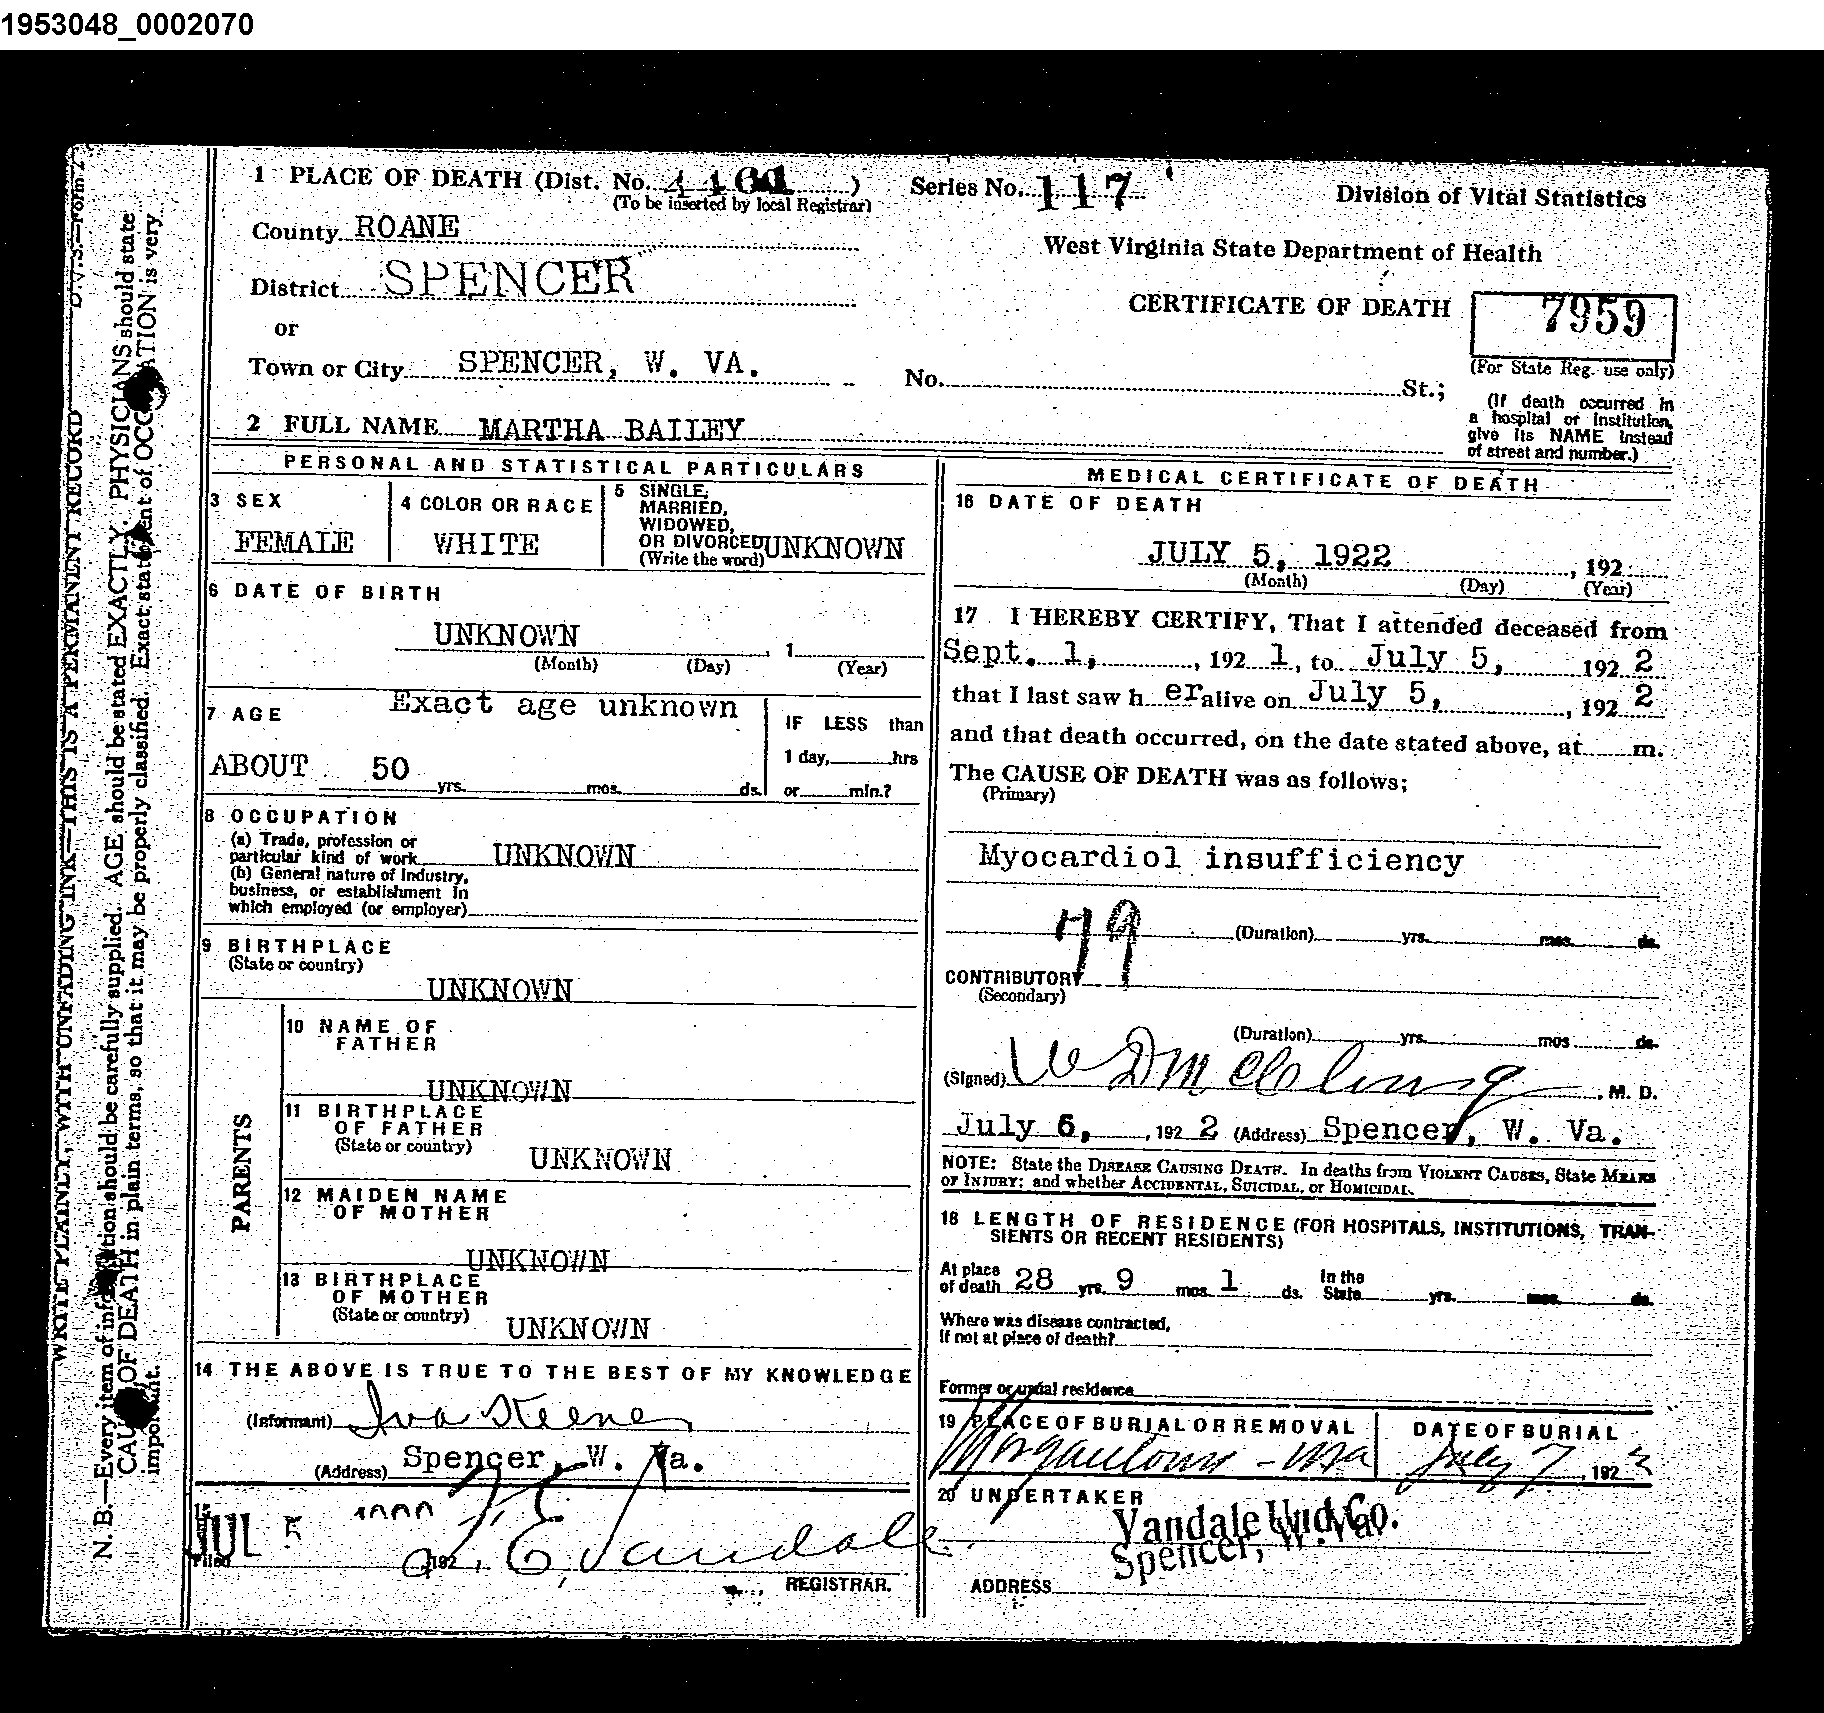 1953048_0002070
D.V.S.—Form 2
WRITE PLAINLY, WITH UNFADING INK—THIS IS A PERMANENT RECORD
N. B.—Every item of information should be carefully supplied. AGE should be stated EXACTLY. PHYSICIANS should state
CAUSE OF DEATH in plain terms, so that it may be properly classified. Exact statement of OCCUPATION is very
important.
1 PLACE OF DEATH (Dist. No. )
(To be inserted by local Registrar)
Series No. 117
Division of Vital Statistics
County ROANE
West Virginia State Department of Health
District SPENCER
CERTIFICATE OF DEATH
7959
or
(For State Reg. use only)
Town or City SPENCER, W. VA.
No. St.;
(If death occurred in
a hospital or institution,
give its NAME instead
of street and number.)
2 FULL NAME MARTHA BAILEY
PERSONAL AND STATISTICAL PARTICULARS
3 SEX
FEMALE
4 COLOR OR RACE
WHITE
5 SINGLE,
MARRIED,
WIDOWED,
OR DIVORCED UNKNOWN
(Write the word)
6 DATE OF BIRTH
UNKNOWN , 1
(Month) (Day) (Year)
7 AGE Exact age unknown
ABOUT 50 yrs. mos. ds.
IF LESS than
1 day, hrs
or min.?
8 OCCUPATION
(a) Trade, profession or
particular kind of work UNKNOWN
(b) General nature of Industry,
business, or establishment in
which employed (or employer)
9 BIRTHPLACE
(State or country)
UNKNOWN
PARENTS
10 NAME OF
FATHER
UNKNOWN
11 BIRTHPLACE
OF FATHER
(State or country) UNKNOWN
12 MAIDEN NAME
OF MOTHER
UNKNOWN
13 BIRTHPLACE
OF MOTHER
(State or country) UNKNOWN
14 THE ABOVE IS TRUE TO THE BEST OF MY KNOWLEDGE
(Informant) Iva Keene
(Address) Spencer, W. Va.
15
JUL 5
Filed 192 E. Vandale
REGISTRAR.
MEDICAL CERTIFICATE OF DEATH
16 DATE OF DEATH
JULY 5, 1922 , 192
(Month) (Day) (Year)
17 I HEREBY CERTIFY, That I attended deceased from
Sept. 1, , 192 1, to July 5, 192 2
that I last saw h er alive on July 5, , 192 2
and that death occurred, on the date stated above, at m.
The CAUSE OF DEATH was as follows;
(Primary)
Myocardiol insufficiency
79
(Duration) yrs. mos. ds.
CONTRIBUTORY
(Secondary)
(Duration) yrs. mos ds.
(Signed) W D McClung , M. D.
July 5, , 192 2 (Address) Spencer, W. Va.
NOTE: State the DISEASE CAUSING DEATH. In deaths from VIOLENT CAUSES, State MEANS
OF INJURY; and whether ACCIDENTAL, SUICIDAL, or HOMICIDAL.
18 LENGTH OF RESIDENCE (FOR HOSPITALS, INSTITUTIONS, TRAN-
SIENTS OR RECENT RESIDENTS)
At place
of death 28 yrs 9 mos 1 ds. In the
State yrs. mos. ds.
Where was disease contracted,
If not at place of death?
Former or usual residence
19 PLACE OF BURIAL OR REMOVAL
Morgantown
DATE OF BURIAL
July 7, 1922
20 UNDERTAKER
Vandale Und. Co.
Spencer, W. Va.
ADDRESS